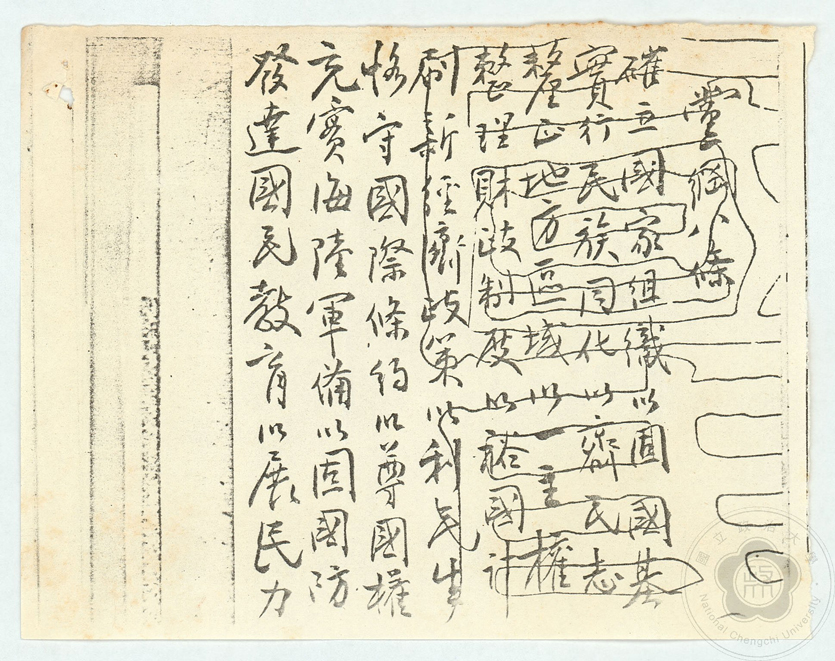 黨綱八條
確立國家組織以固國基
實行民族同化以齊民志
釐正地方區域以一主權
整理財政制度以裕國計
刷新經濟政策以利民生
恪守國際條約以尊國權
充實海陸軍備以固國防
發達國民教育以展民力
國立政治大學
National Chengchi University